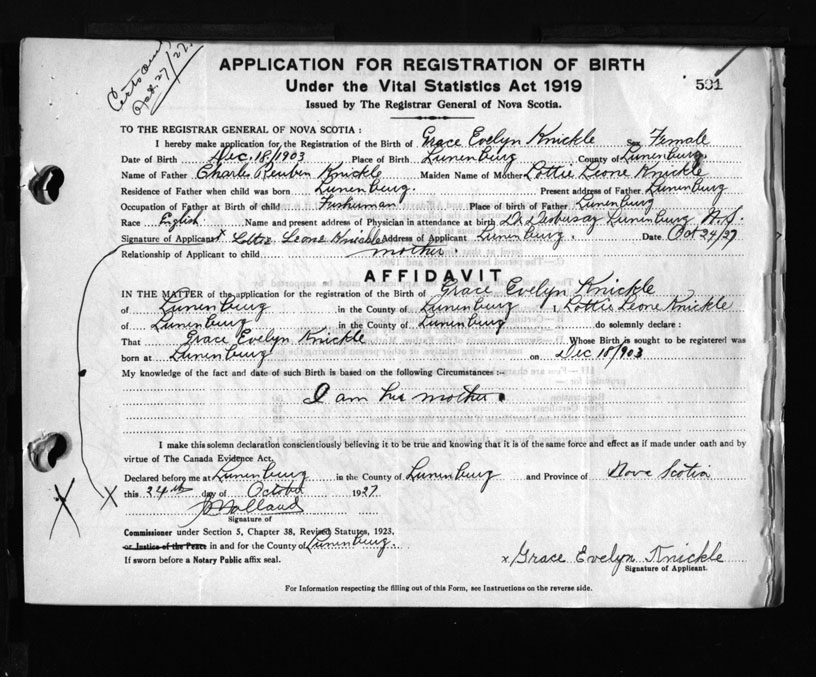 Oct. 27/27.
APPLICATION FOR REGISTRATION OF BIRTH
Under the Vital Statistics Act 1919
591
Issued by The Registrar General of Nova Scotia.
TO THE REGISTRAR GENERAL OF NOVA SCOTIA :
I hereby make application for the Registration of the Birth of Grace Evelyn Knickle Sex Female
Date of Birth Dec. 18/1903 Place of Birth Lunenburg County of Lunenburg.
Name of Father Charles Reuben Knickle Maiden Name of Mother Lottie Leone Knickle
Residence of Father when child was born Lunenburg. Present address of Father Lunenburg
Occupation of Father at Birth of child Fisherman Place of birth of Father Lunenburg
Race English Name and present address of Physician in attendance at birth Dr Lunenburg N.S.
Signature of Applicant x Lottie Leone Knickle Address of Applicant Lunenburg. Date Oct 24/27
Relationship of Applicant to child mother.
AFFIDAVIT
IN THE MATTER of the application for the registration of the Birth of Grace Evelyn Knickle
of Lunenburg in the County of Lunenburg I, Lottie Leone Knickle
of Lunenburg in the County of Lunenburg do solemnly declare :
That Grace Evelyn Knickle Whose Birth is sought to be registered was
born at Lunenburg on Dec 18/903
My knowledge of the fact and date of such Birth is based on the following Circumstances :-
I am her mother.
I make this solemn declaration conscientiously believing it to be true and knowing that it is of the same force and effect as if made under oath and by
virtue of The Canada Evidence Act.
Declared before me at Lunenburg in the County of Lunenburg and Province of Nova Scotia
this 24th day of October 1927
X X
Signature of
Commissioner under Section 5, Chapter 38, Revised Statutes, 1923,
or Justice of the Peace in and for the County of Lunenburg.
If sworn before a Notary Public affix seal.
x Grace Evelyn Knickle
Signature of Applicant.
For Information respecting the filling out of this Form, see Instructions on the reverse side.